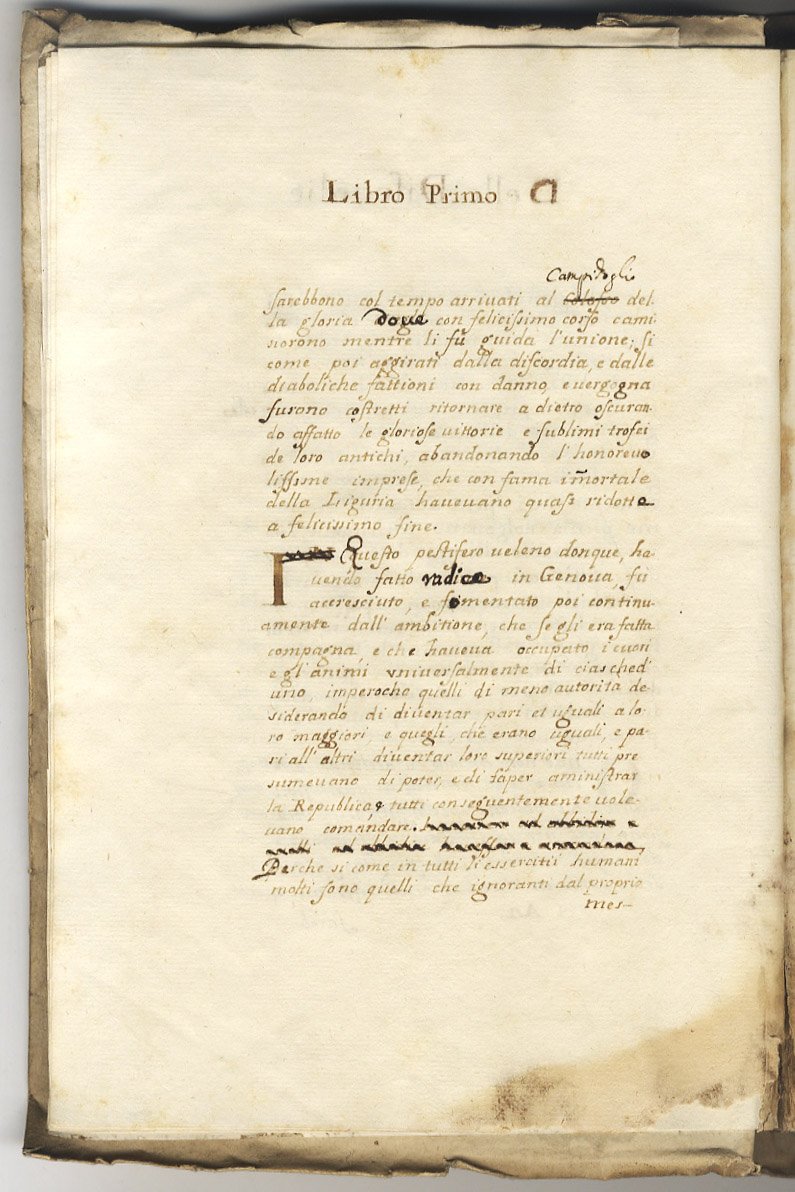 Libro Primo
Campidoglio
sarebbono col tempo arrivati al Colosso del-
la gloria doue con felicissimo corso cami-
norono mentre li fù guida l'unione; si
come poi aggirati dalla discordia, e dalle
diaboliche fattioni con danno, e uergogna
furono costretti ritornare a dietro oscuran-
do affatto le gloriose uittorie e sublimi trofei
de loro antichi, abandonando l'honoreuo
lissime imprese, che con fama im̃ortale
della Liguria haueuano quasi ridotte
a felicissimo fine.
Questo pestifero ueleno donque, ha-
uendo fatto radice in Genoua, fù
accresciuto, e fomentato poi continu-
amente dall' ambitione, che se gli era fatta
compagna e che haueua occupato i cuori
e gl' animi vniuersalmente di ciasched'
uno, imperoche quelli di meno autorita de-
siderando di diuentar pari et uguali a lo-
ro maggiori, e quegli, che erano uguali, e pa-
ri all' altri diuentar loro superiori tutti pre
sumeuano di poter, e di saper aministrar
la Republica, e tutti conseguentemente uole-
uano comandare.
Perche si come in tutti li essercitii humani
molti sono quelli che ignoranti dal proprio
mes-